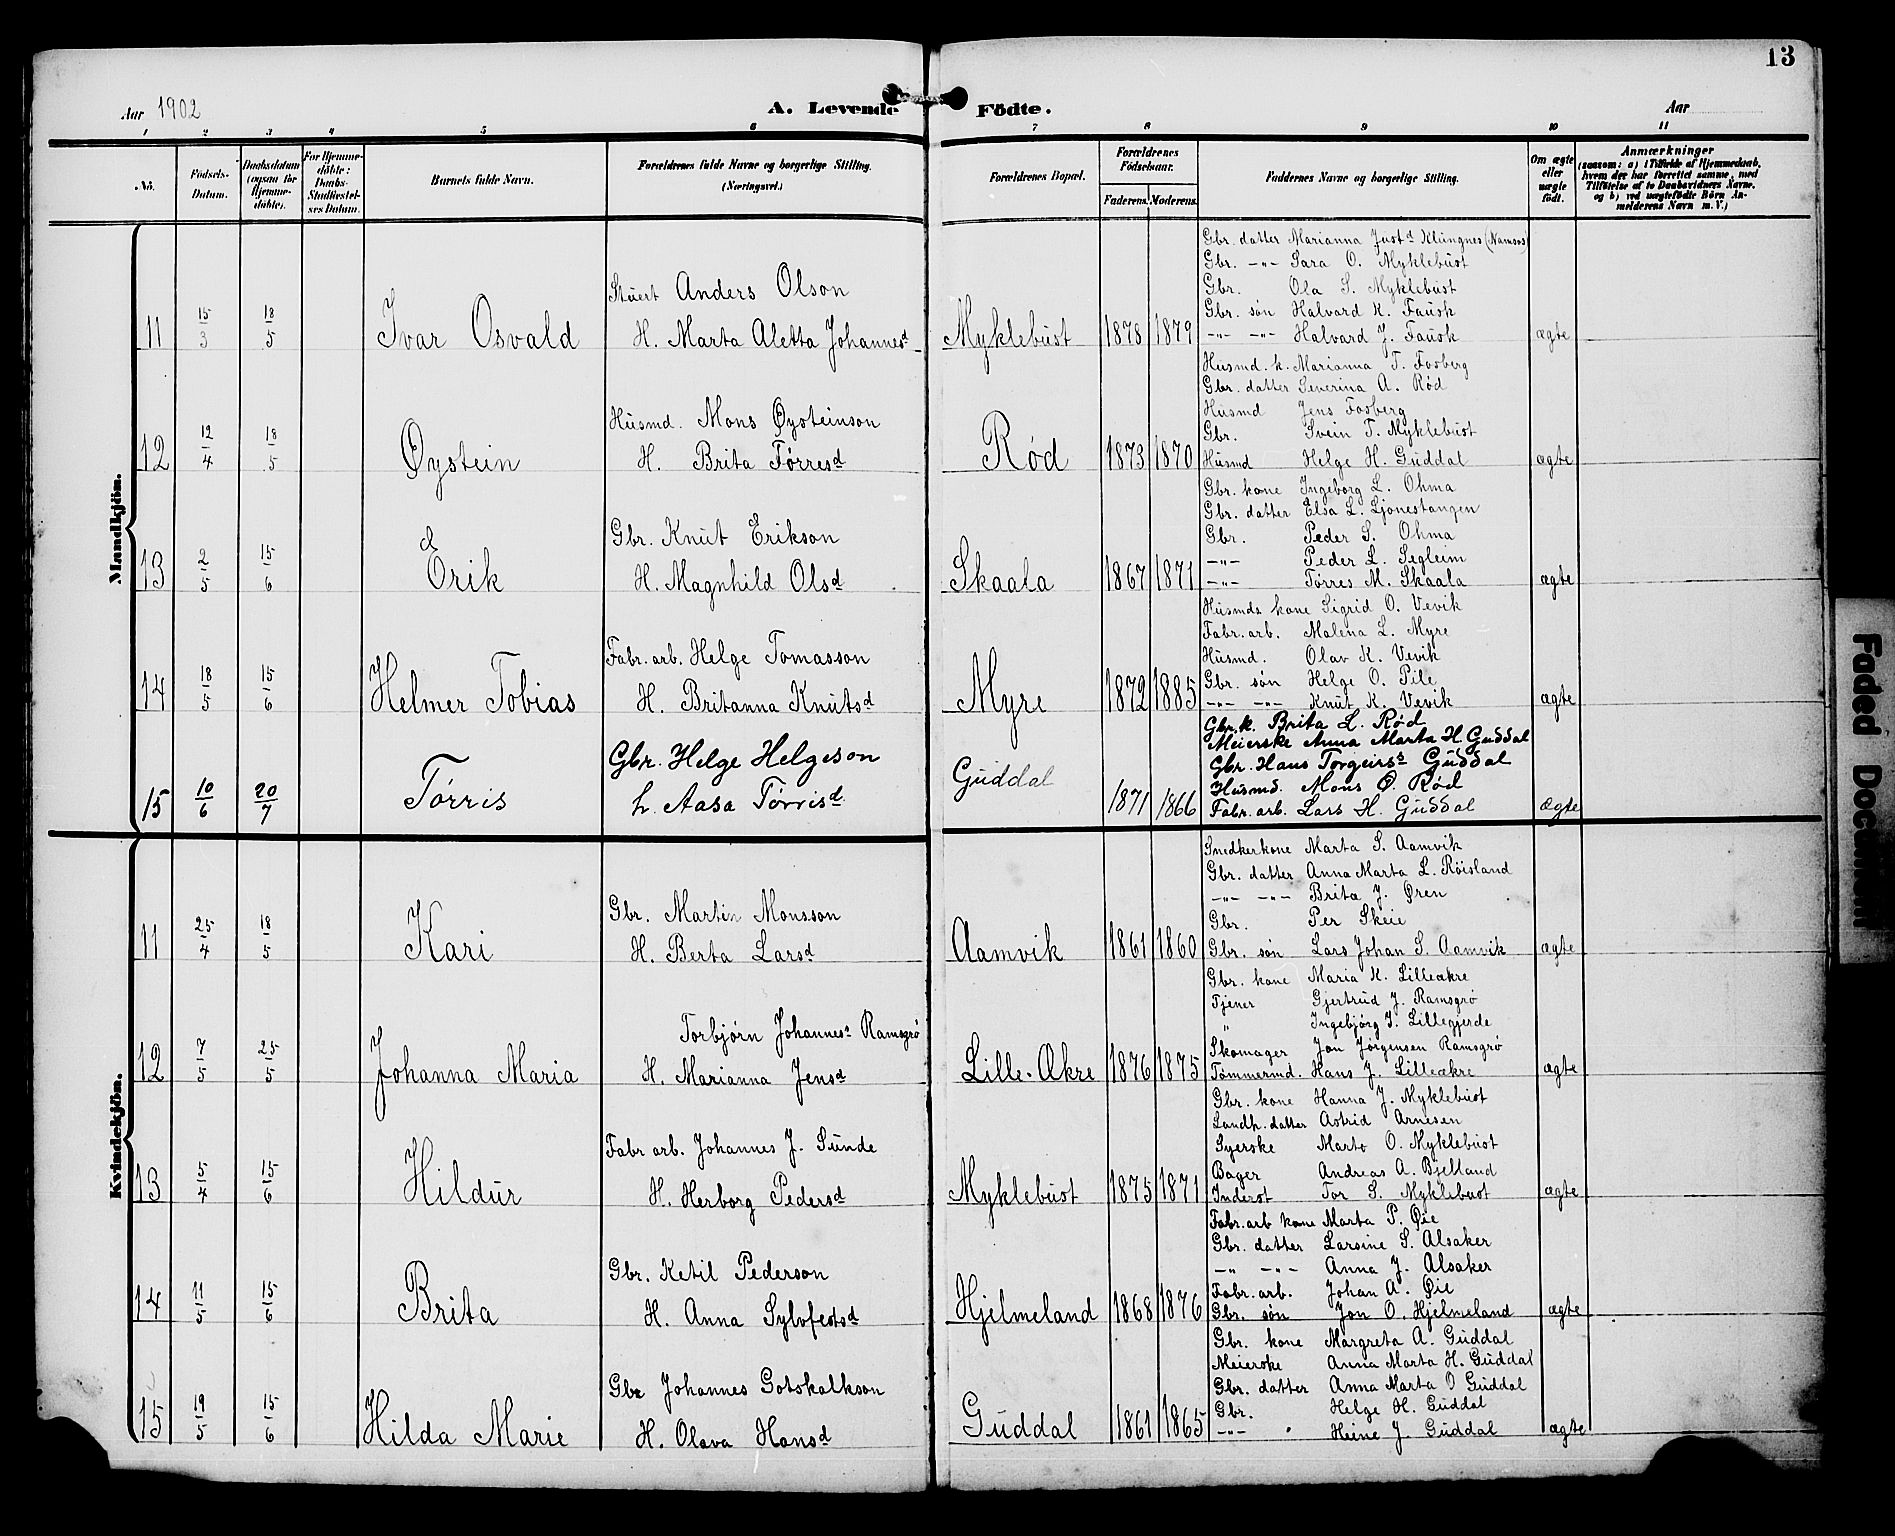 13
Aar 1902
A. Levende Födte.
Aar
1 2 3 4 5 6 7 8 9 10 11
No.
Födsels-Datum.
Daabsdatum (ogsaa for Hjemme-döbte).
For Hjemme-döbte: Daabs-Stadfæstel-ses Datum.
Barnets fulde Navn.
Forældrenes fulde Navne og borgerlige Stilling. (Næringsvei.)
Forældrenes Bopæl.
Forældrenes Födselsaar.
Faderens. Moderens.
Faddernes Navne og borgerlige Stilling.
Om ægte eller uægte födt.
Anmærkninger
(saasom: a) i Tilfælde af Hjemmedaab, hvem der har forrettet samme, med Tilföielse af to Daabsvidners Navne, og b) ved uægtefödte Börn An-melderens Navn m. V.)
Mandkjön.
11 15/3 18/5 Ivar Osvald
Stuert Anders Olson
H. Marta Aletta Johannesd
Myklebust 1878 1879
Gbr. datter Marianna Justd Klungnes (Namsos)
Gbr. -"- Sara O. Myklebust
Gbr. Ola S. Myklebust
Gbr. søn Halvard K. Fausk
-"- -"- Halvard J. Fausk
ægte
12 12/4 18/5 Øystein
Husmd. Mons Øysteinson
H. Brita Tørresd
Rød 1873 1870
Husmd. k. Marianna T. Fosberg
Gbr. datter Severina A. Rød
Husmd Jens Fosberg
Gbr. Svein T. Myklebust
Husmd Helge H. Guddal
ægte
13 2/5 15/6 Erik
Gbr. Knut Erikson
H. Magnhild Olsd
Skaala 1867 1871
Gbr. kone Ingeborg L. Ohma
Gbr. datter Elsa L. Ljonestangen
Gbr. Peder S. Ohma
-"- Peder L. Segleim
-"- Tørres M. Skaala
ægte
14 18/5 15/6 Helmer Tobias
Fabr. arb. Helge Tomasson
H. Britanna Knutsd
Myre 1872 1885
Husmds kone Sigrid O. Vevik
Fabr. arb. Malena L. Myre
Husmd. Olav K. Vevik
Gbr. søn Helge O. Pile
-"- -"- Knut K. Vevik
ægte
15 10/6 20/7 Tørris
Gbr. Helge Helgeson
h. Aasa Tørrisd.
Guddal 1871 1866
Gbr. k. Brita L. Rød
Meierske Anna Marta H. Guddal
Gbr. Hans Torgeirss Guddal
Husmd. Mons Ø. Rød
Fabr. arb. Lars H. Guddal
Ægte
Kvindekjön.
11 25/4 18/5 Kari
Gbr. Martin Monsson
H. Berta Larsd
Aamvik 1861 1860
Snedkerkone Marta S. Aamvik
Gbr. datter Anna Marta L. Røisland
-"- -"- Brita J. Øren
Gbr. Per Skeie
Gbr. søn Lars Johan S. Aamvik
ægte
12 7/5 25/5 Johanna Maria
Torbjørn Johanness Ramsgrø
H. Marianna Jensd
Lille-Økre 1876 1875
Gbr. kone Maria K. Lilleøkre
Tjener Gjertrud J. Ramsgrø
" Ingebjørg I. Lillegjerde
Skomager Jon Jørgensen Ramsgrø
Tømmermd. Hans J. Lilleøkre
ægte
13 5/4 15/6 Hildur
Fabr arb. Johannes J. Sunde
H. Herborg Pedersd
Myklebust 1875 1871
Gbr. kone Hanna J. Myklebust
Landh. datter Astrid Arnesen
Syerske Marta O. Myklebust
Bager Andreas A. Bjelland
Inderst Tor S. Myklebust
ægte
14 11/5 15/6 Brita
Gbr. Ketil Pederson
H. Anna Sylvfestsd
Hjelmeland 1868 1876
Fabr. arb kone Marta P. Øie
Gbr. datter Larsine S. Alsaker
-" -"- Anna J. Alsaker
Fabr. arb. Johan A. Øie
Gbr. søn Jon O. Hjelmeland
ægte
15 19/5 15/6 Hilda Marie
Gbr Johannes Gotskalkson
H. Olava Hansd
Guddal 1861 1865
Gbr. kone Margreta A. Guddal
Meierske Anna Marta H. Guddal
Gbr. datter Anna Marta O Guddal
Gbr. Helge H. Guddal
-"- " Heine J. Guddal
ægte
Faded Document